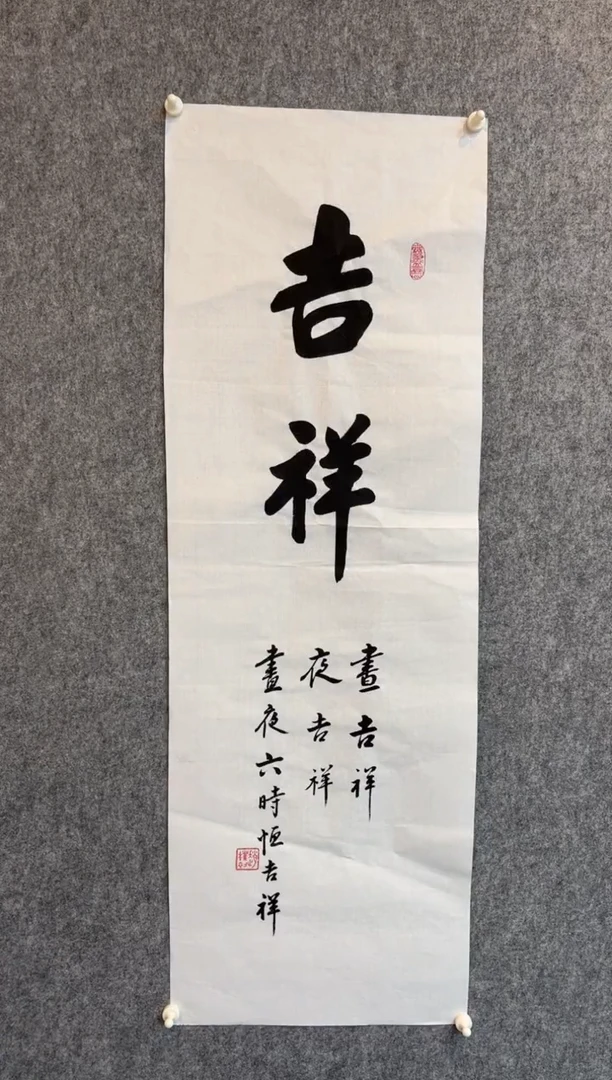 吉祥
晝吉祥
夜吉祥
晝夜六時恒吉祥